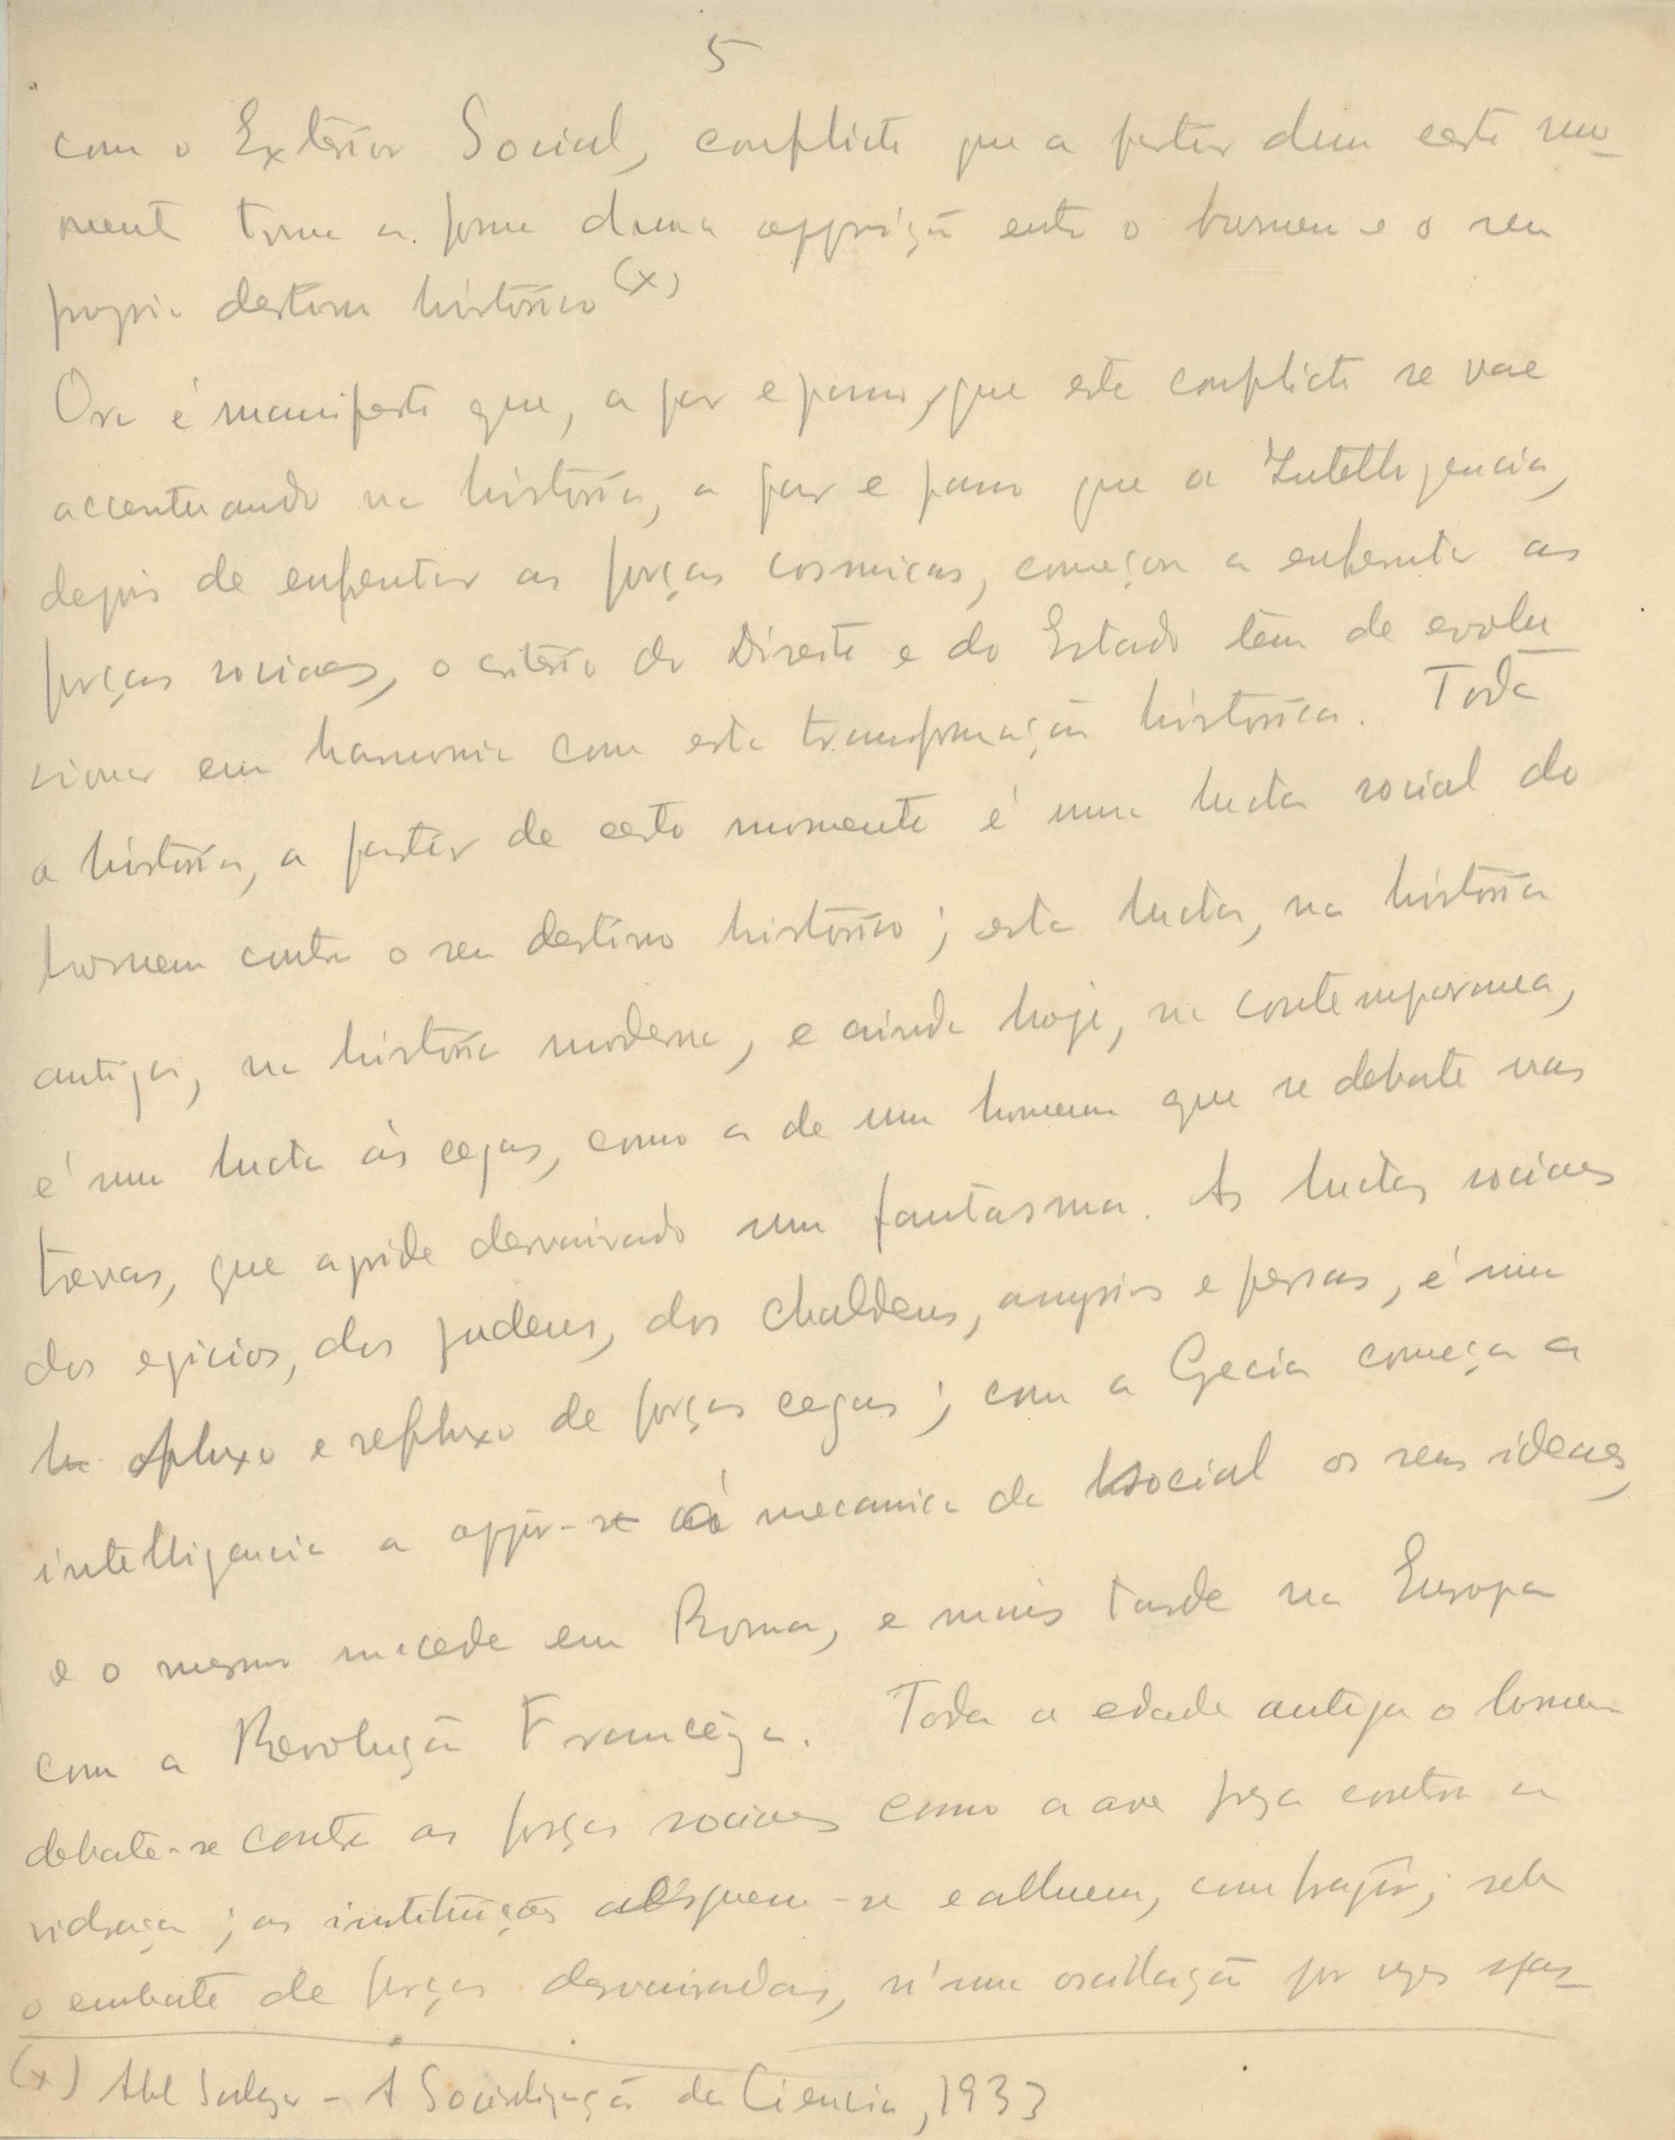 5
com o Exterior Social, conflicto que a partir dum certo mo-
mento toma a forma duma opposição entre o homem e o seu
proprio destino historico (x)
Ora é manifesto que, a par e passo, que este conflicto se vae
accentuando na historia, a par e passo que a Intelligencia,
depois de enfrentar as forças cosmicas, começou a enfrentar as
forças sociaes, o criterio do Direito e do Estado têm de evolu-
cionar em harmonia com esta transformação historica. Toda
a historia, a partir de certo momento é uma lucta social do
homem contra o seu destino historico; esta lucta, na historia
antiga, na historia moderna, e ainda hoje, na contemporanea,
é uma lucta ás cegas, como a de um homem que se debate nas
trevas, que aggride desvairado um fantasma. As luctas sociaes
dos egicios, dos judeus, dos chaldeus, assyrios e persas, é um
fluxo e refluxo de forças cegas; com a Grecia começa a
intelligencia a oppôr-se á mecanica do social os seus ideaes,
e o mesmo succede em Roma, e mais tarde na Europa
com a Revolução Francêza. Toda a edade antiga o homem
debate-se contra as forças sociaes como a ave presa contra a
vidraça; as instituições erguem-se e alluem, com fragôr, sob
o embate de forças desvairadas, n'uma oscillação por vezes spas-
(x) Abel Salazar - A Socialização da Ciencia, 1933